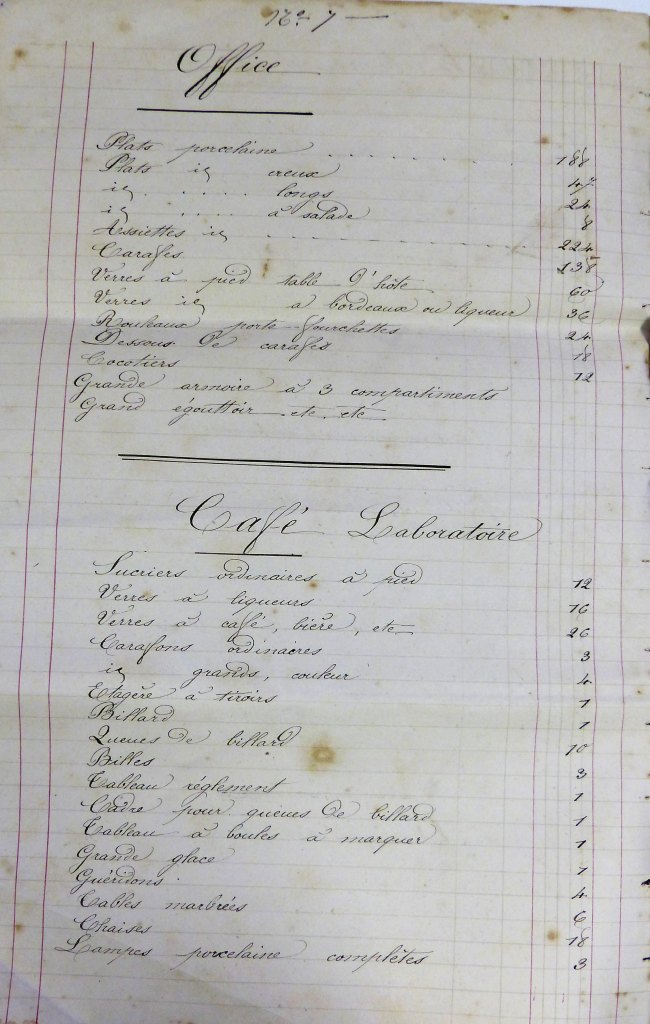 No. 7 —
Office
Plats porcelaine . . . . . . . . 188
Plats id creux 47
id . . . . . longs 24
id . . . . à salade 8
Assiettes id . . . . . . . . . . . . 224
Carafes 138
Verres à pied table d'hôte 60
Verres id à bordeaux ou liqueur 36
Rouleaux porte-fourchettes 24
Dessous de carafes 18
Cocotiers 12
Grande armoire à 3 compartiments
Grand égouttoir etc. etc
Café Laboratoire
Sucriers ordinaires à pied 12
Verres à liqueurs 16
Verres à café, bière, etc 26
Carafons ordinaires 3
id grands, couleur 4
Etagère à tiroirs 1
Billard 1
Queues de billard 10
Billes 3
Tableau réglement 1
Cadre pour queues de billard 1
Tableau à boules à marquer 1
Grande glace 1
Guéridons 4
Tables marbrées 6
Chaises 18
Lampes porcelaine complètes 3